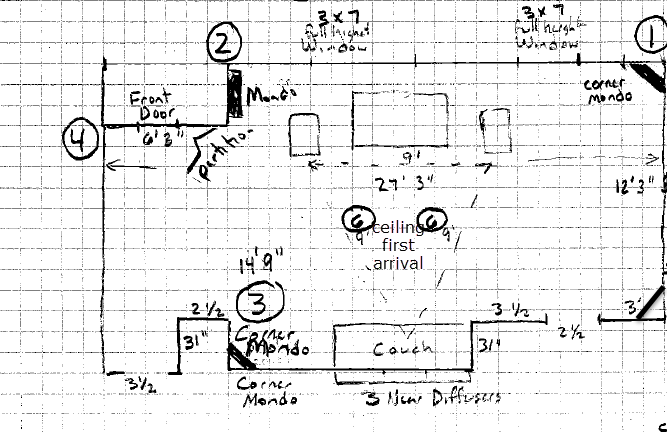 3 x 7
full height
Window
3 x 7
full height
Window
1
2
corner
mondo
Front
Door
Mondo
6' 3"
4
partition
9'
27' 3"
12' 3"
6
6
9'
9'
ceiling
first
arrival
14' 9"
3
2 1/2
3 1/2
3'
Corner
Mondo
31"
Couch
31"
2 1/2
3 1/2
Corner
Mondo
3 Near Diffusers